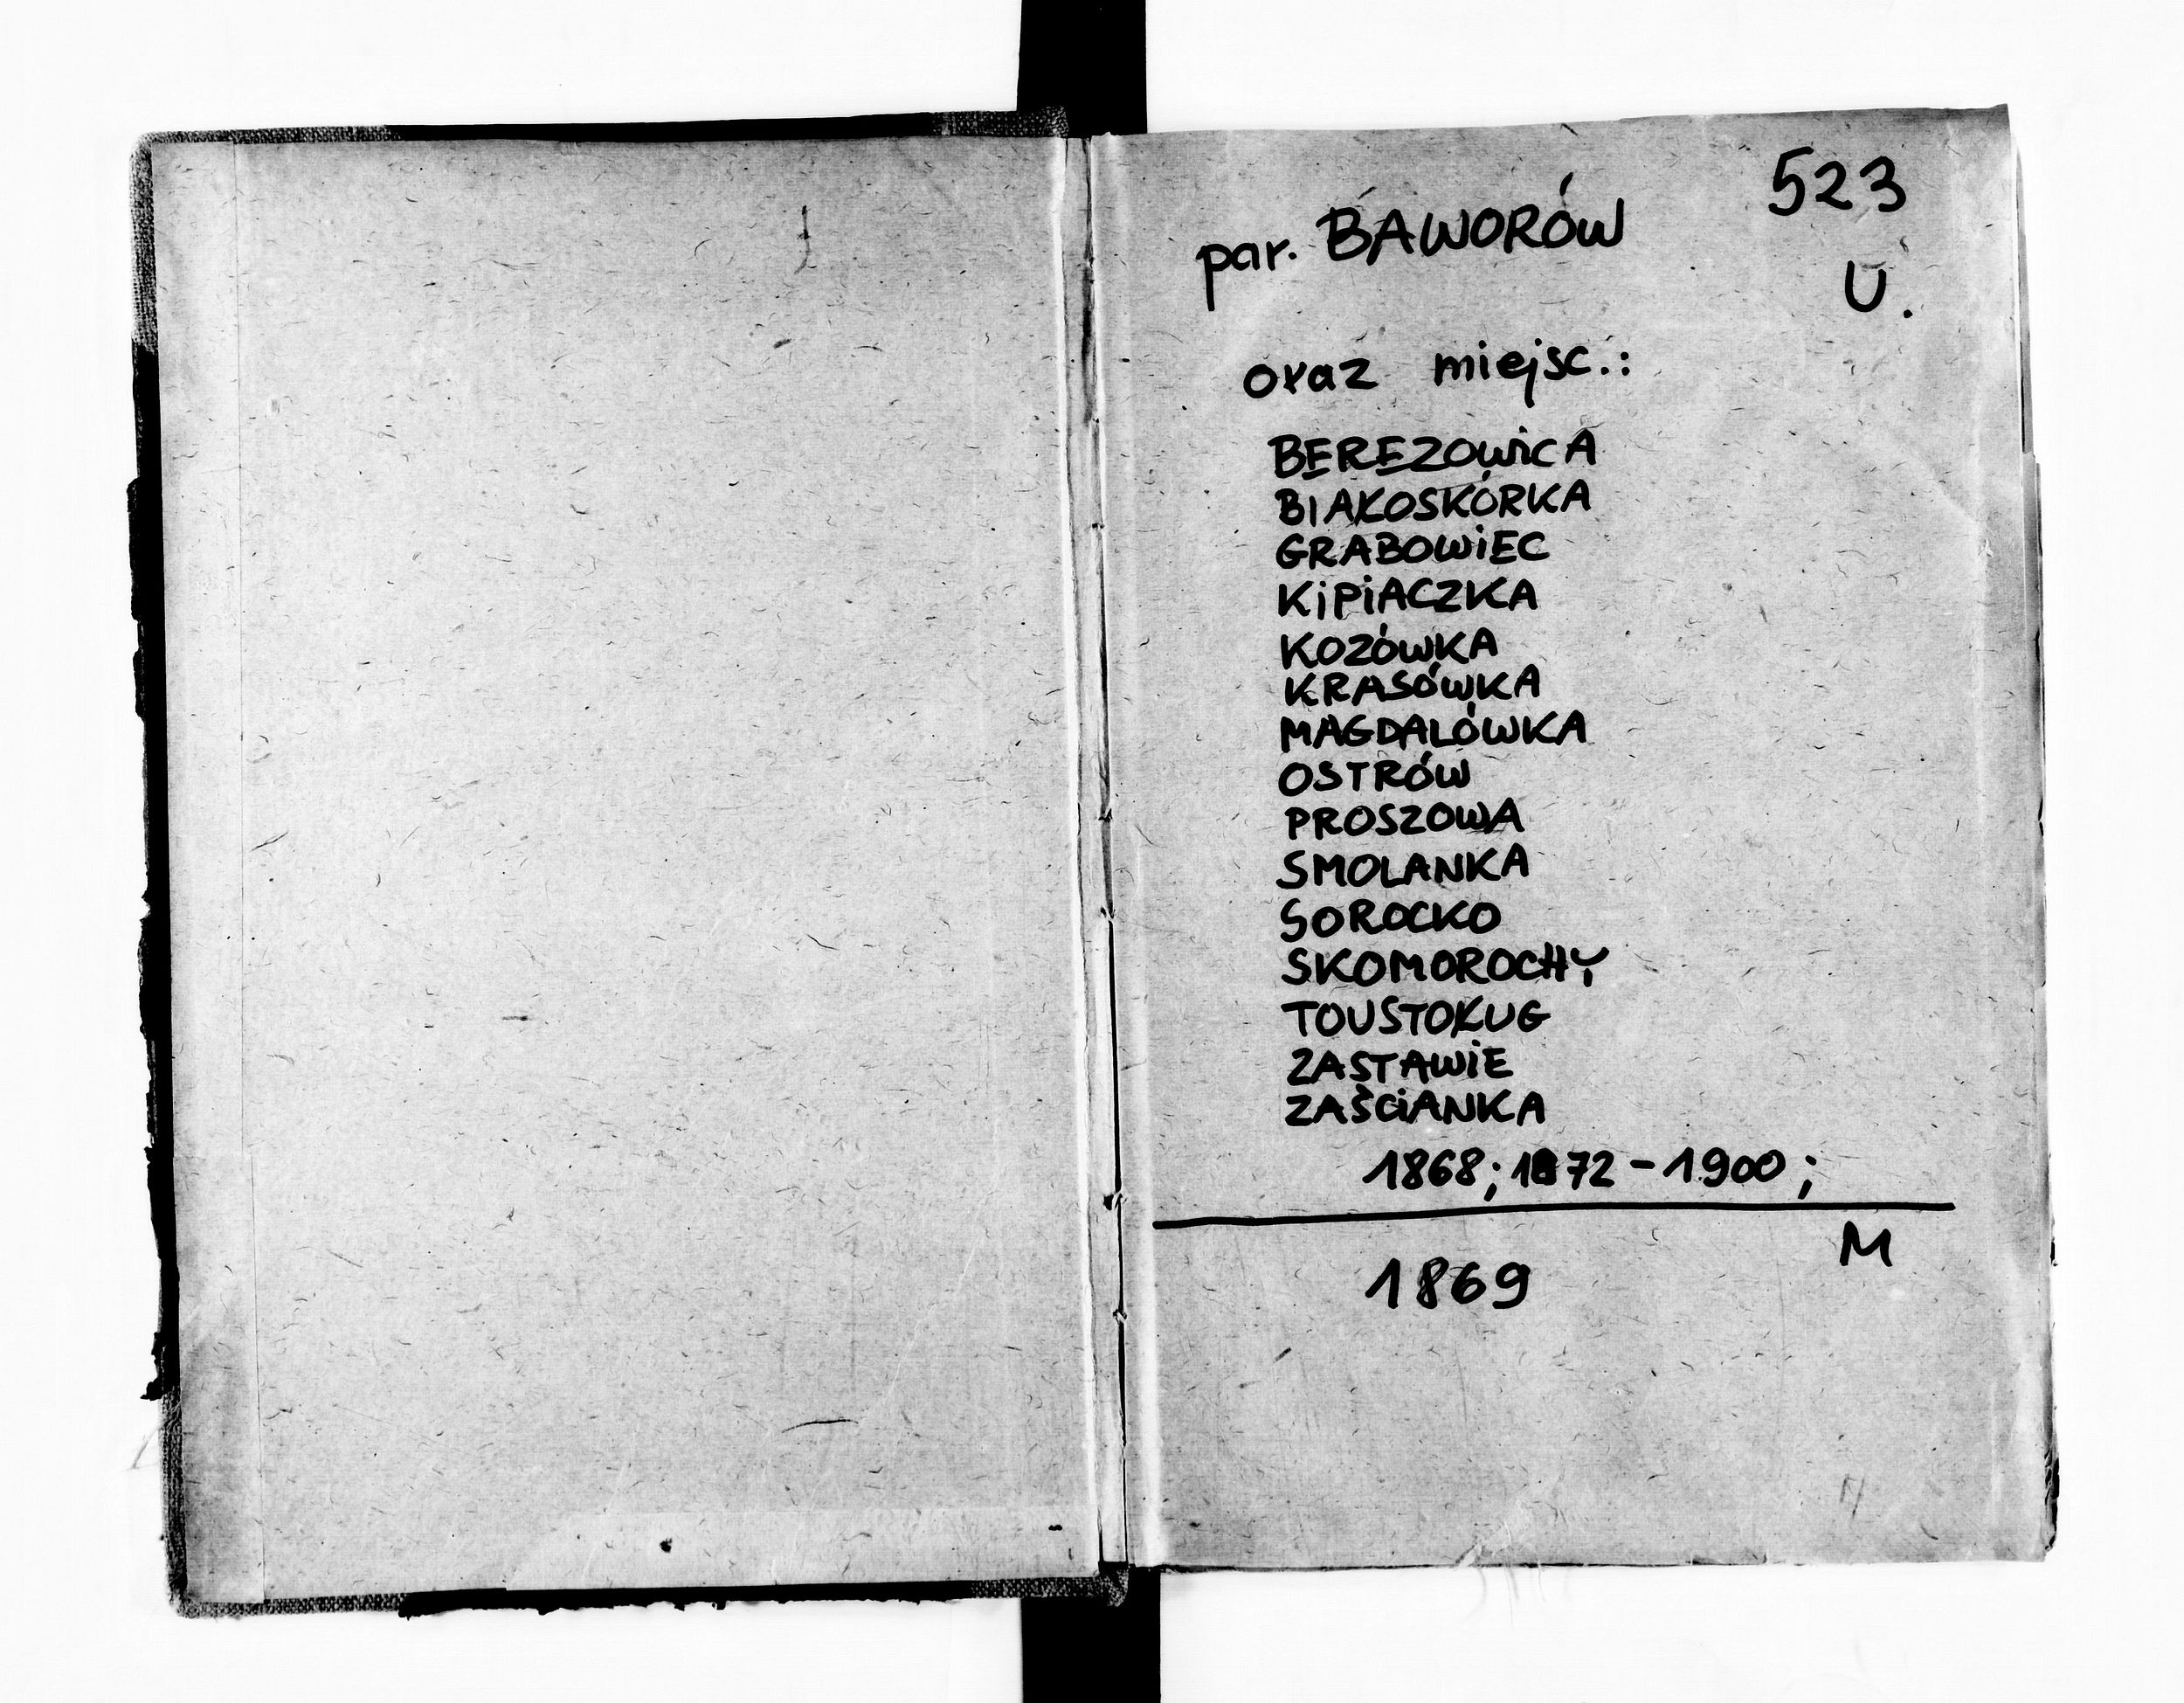 523
par. BAWORÓW
U.
oraz miejsc.:
BEREZOWICA
BIAŁOSKÓRKA
GRABOWIEC
KIPIACZKA
KOZÓWKA
KRASÓWKA
MAGDALÓWKA
OSTRÓW
PROSZOWA
SMOLANKA
SOROCKO
SKOMOROCHY
TOUSTOŁUG
ZASTAWIE
ZAŚCIANKA
1868; 1872 - 1900;
M
1869